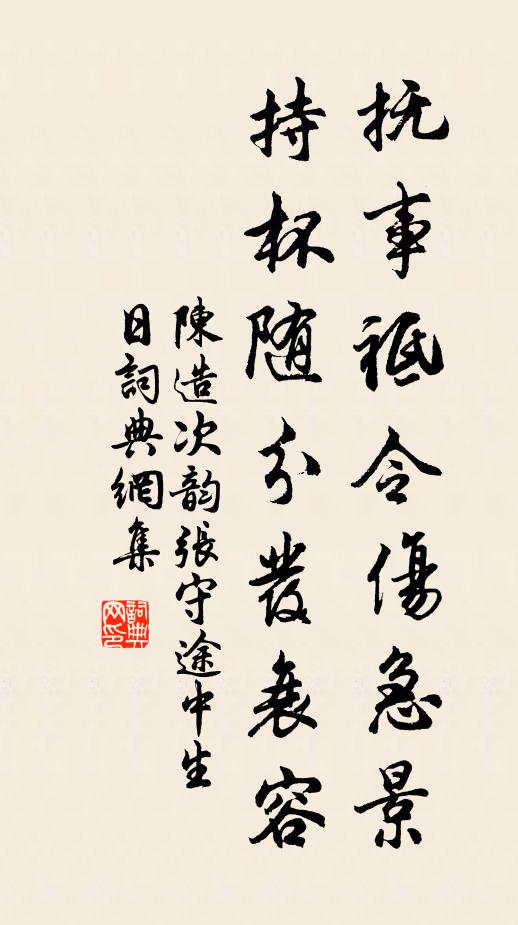 抚事祗令傷急景
持杯随分發衰容
陳造次韵張守途中生
日詞典網集
詞典
网印